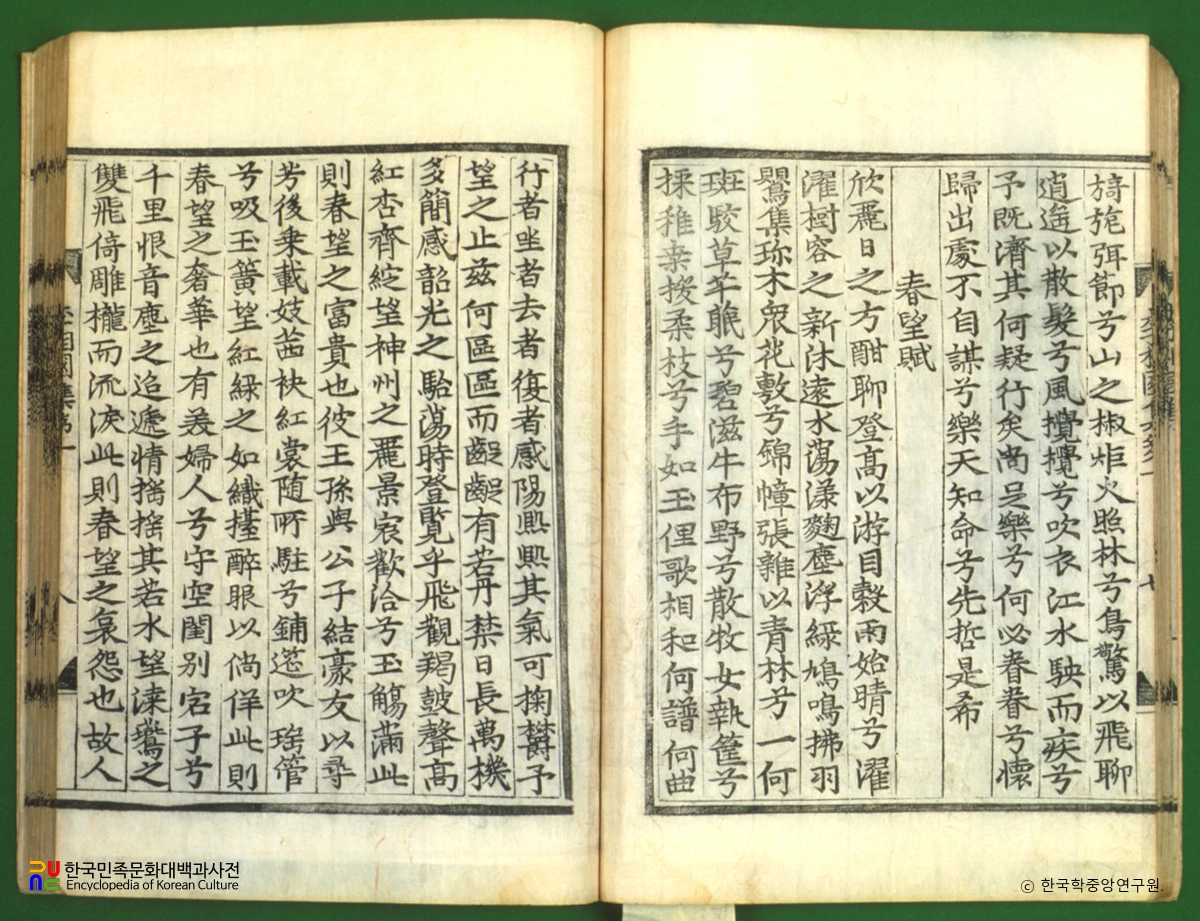 旖旎弭節兮山之椒炬火照林兮鳥驚以飛聊
逍遙以散髮兮風攪攪兮吹衣江水駛而疾兮
予旣濟其何疑行矣尙足樂兮何必眷眷兮懷
歸出處不自謀兮樂天知命兮先哲是希
春望賦
欣麗日之方酣聊登高以游目穀雨始晴兮濯
濯樹容之新沐遠水蕩漾麴塵浮綠鳩鳴拂羽
鸎集珎木衆花敷兮錦幛張雜以靑林兮一何
斑駮草芊眠兮碧滋牛布野兮散牧女執筐兮
採稚桑援柔枝兮手如玉俚歌相和何譜何曲
行者坐者去者復者感陽熙熙其氣可掬欝予
望之止玆何區區而齪齪有若丹禁日長萬機
多簡感韶光之駘蕩時登覽乎飛觀羯皷聲高
紅杏齊綻望神州之麗景宸歡洽兮玉觴滿此
則春望之富貴也彼王孫與公子結豪友以尋
芳後乘載妓茜袂紅裳隨所駐兮鋪筵吹瑤管
兮吸玉簧望紅綠之如織擡醉眼以倘佯此則
春望之奢華也有美婦人兮守空閨別宕子兮
千里恨音塵之迢遞情搖搖其若水望淶鷰之
雙飛倚雕櫳而流淚此則春望之哀怨也故人
李相國集第一
八
한국민족문화대백과사전
Encyclopedia of Korean Culture
© 한국학중앙연구원.